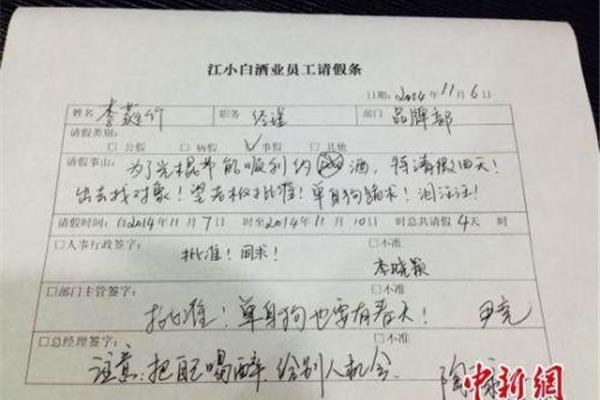 江小白酒业员工请假条
日期: 2014年11月6日
姓名 李 竹 职务 经理 部门 品牌部
请假类别:
□公假 □病假 ☑事假 □其他
请假事由: 为了光棍节能顺利内 酒, 特请假四天!
出去找对象! 望老板批准! 单身狗 求! 泪汪汪!
请假时间: 自2014年11月7日 时至2014年11月10日 时总共请假4天 时
□人事行政签字: □不准
批准! 同求! 李晓颖
□部门主管签字: □不准
批准! 单身狗也要有春天! 尹亮
□总经理签字: □不准
注意: 把自己喝醉, 给别人机会. 陶
中新網